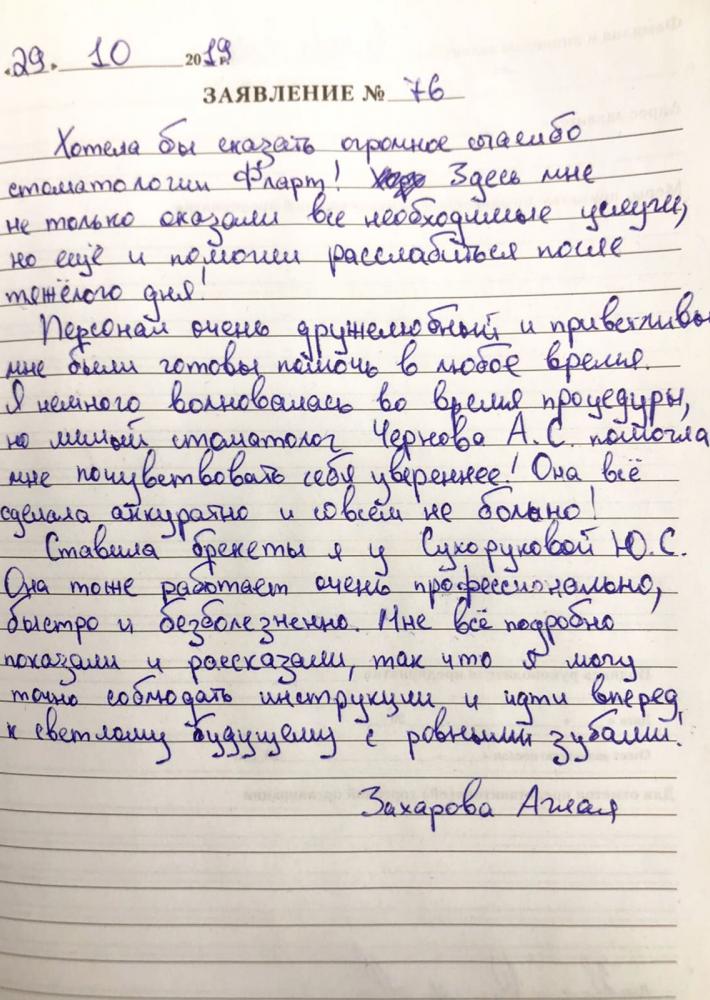 «29» 10 2019 г.
ЗАЯВЛЕНИЕ № 76
Хотела бы сказать огромное спасибо
стоматологии Фларт! Здесь мне
не только оказали все необходимые услуги,
но ещё и помогли расслабиться после
тяжёлого дня!
Персонал очень дружелюбный и приветливы
мне были готовы помочь в любое время.
Я немного волновалась во время процедуры,
но милый стоматолог Чернова А.С. помогла
мне почувствовать себя увереннее! Она всё
сделала аккуратно и совсем не больно!
Ставила брекеты я у Сухоруковой Ю.С.
Она тоже работает очень профессионально,
быстро и безболезненно. Мне всё подробно
показали и рассказали, так что я могу
точно соблюдать инструкции и идти вперед,
к светлому будущему с ровными зубами.
Захарова Аглая